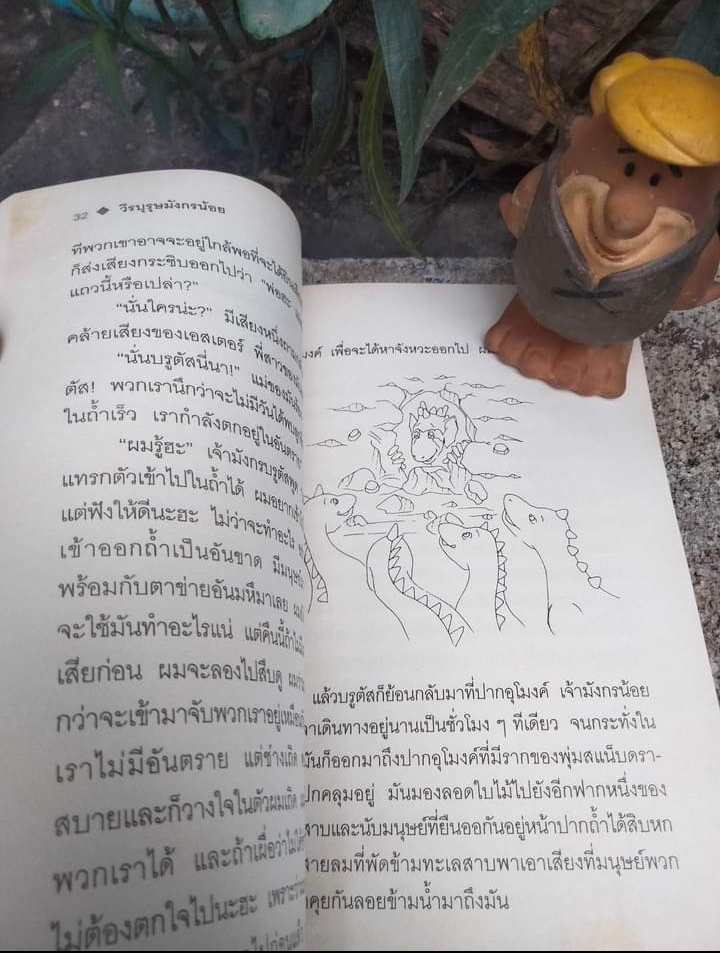 32 ◆ วีรบุรุษมังกรน้อย
ที่พวกเขาอาจจะอยู่ใกล้พอที่จะได้
ก็ส่งเสียงกระซิบออกไปว่า "พ่อฮะ
แถวนี้หรือเปล่า?"
"นั่นใครน่ะ?" มีเสียงหนึ่ง
คล้ายเสียงของเอสเตอร์ พี่สาวของ
"นั่นบรูตัสนี่นา!" แม่ของมัน
ตัส! พวกเรานึกว่าจะไม่มีวันได้พบ
ในถ้ำเร็ว เรากำลังตกอยู่ในอันตราย
"ผมรู้ฮะ" เจ้ามังกรบรูตัสพูด
แทรกตัวเข้าไปในถ้ำได้ ผมอยาก
แต่ฟังให้ดีนะฮะ ไม่ว่าจะทำอะไร
เข้าออกถ้ำเป็นอันขาด มีมนุษย์
พร้อมกับตาข่ายอันมหึมาเลย
จะใช้มันทำอะไรแน่ แต่คืนนี้ถ้า
เสียก่อน ผมจะลองไปสืบดู
กว่าจะเข้ามาจับพวกเราอยู่เหมือน
เราไม่มีอันตราย แต่ช่างเถิด
สบายและก็วางใจในตัวผมเถิด
พวกเราได้ และถ้าเผื่อว่า
ไม่ต้องตกใจไปนะฮะ เพราะ
มงค์ เพื่อจะได้หาจังหวะออกไป
แล้วบรูตัสก็ย้อนกลับมาที่ปากอุโมงค์ เจ้ามังกรน้อย
เดินทางอยู่นานเป็นชั่วโมง ๆ ทีเดียว จนกระทั่งใน
มันก็ออกมาถึงปากอุโมงค์ที่มีรากของพุ่มสแน็บดรา-
ปกคลุมอยู่ มันมองลอดใบไม้ไปยังอีกฟากหนึ่งของ
สาบและนับมนุษย์ที่ยืนออกันอยู่หน้าปากถ้ำได้สิบหก
สายลมที่พัดข้ามทะเลสาบพาเอาเสียงที่มนุษย์พวก
คุยกันลอยข้ามน้ำมาถึงมัน